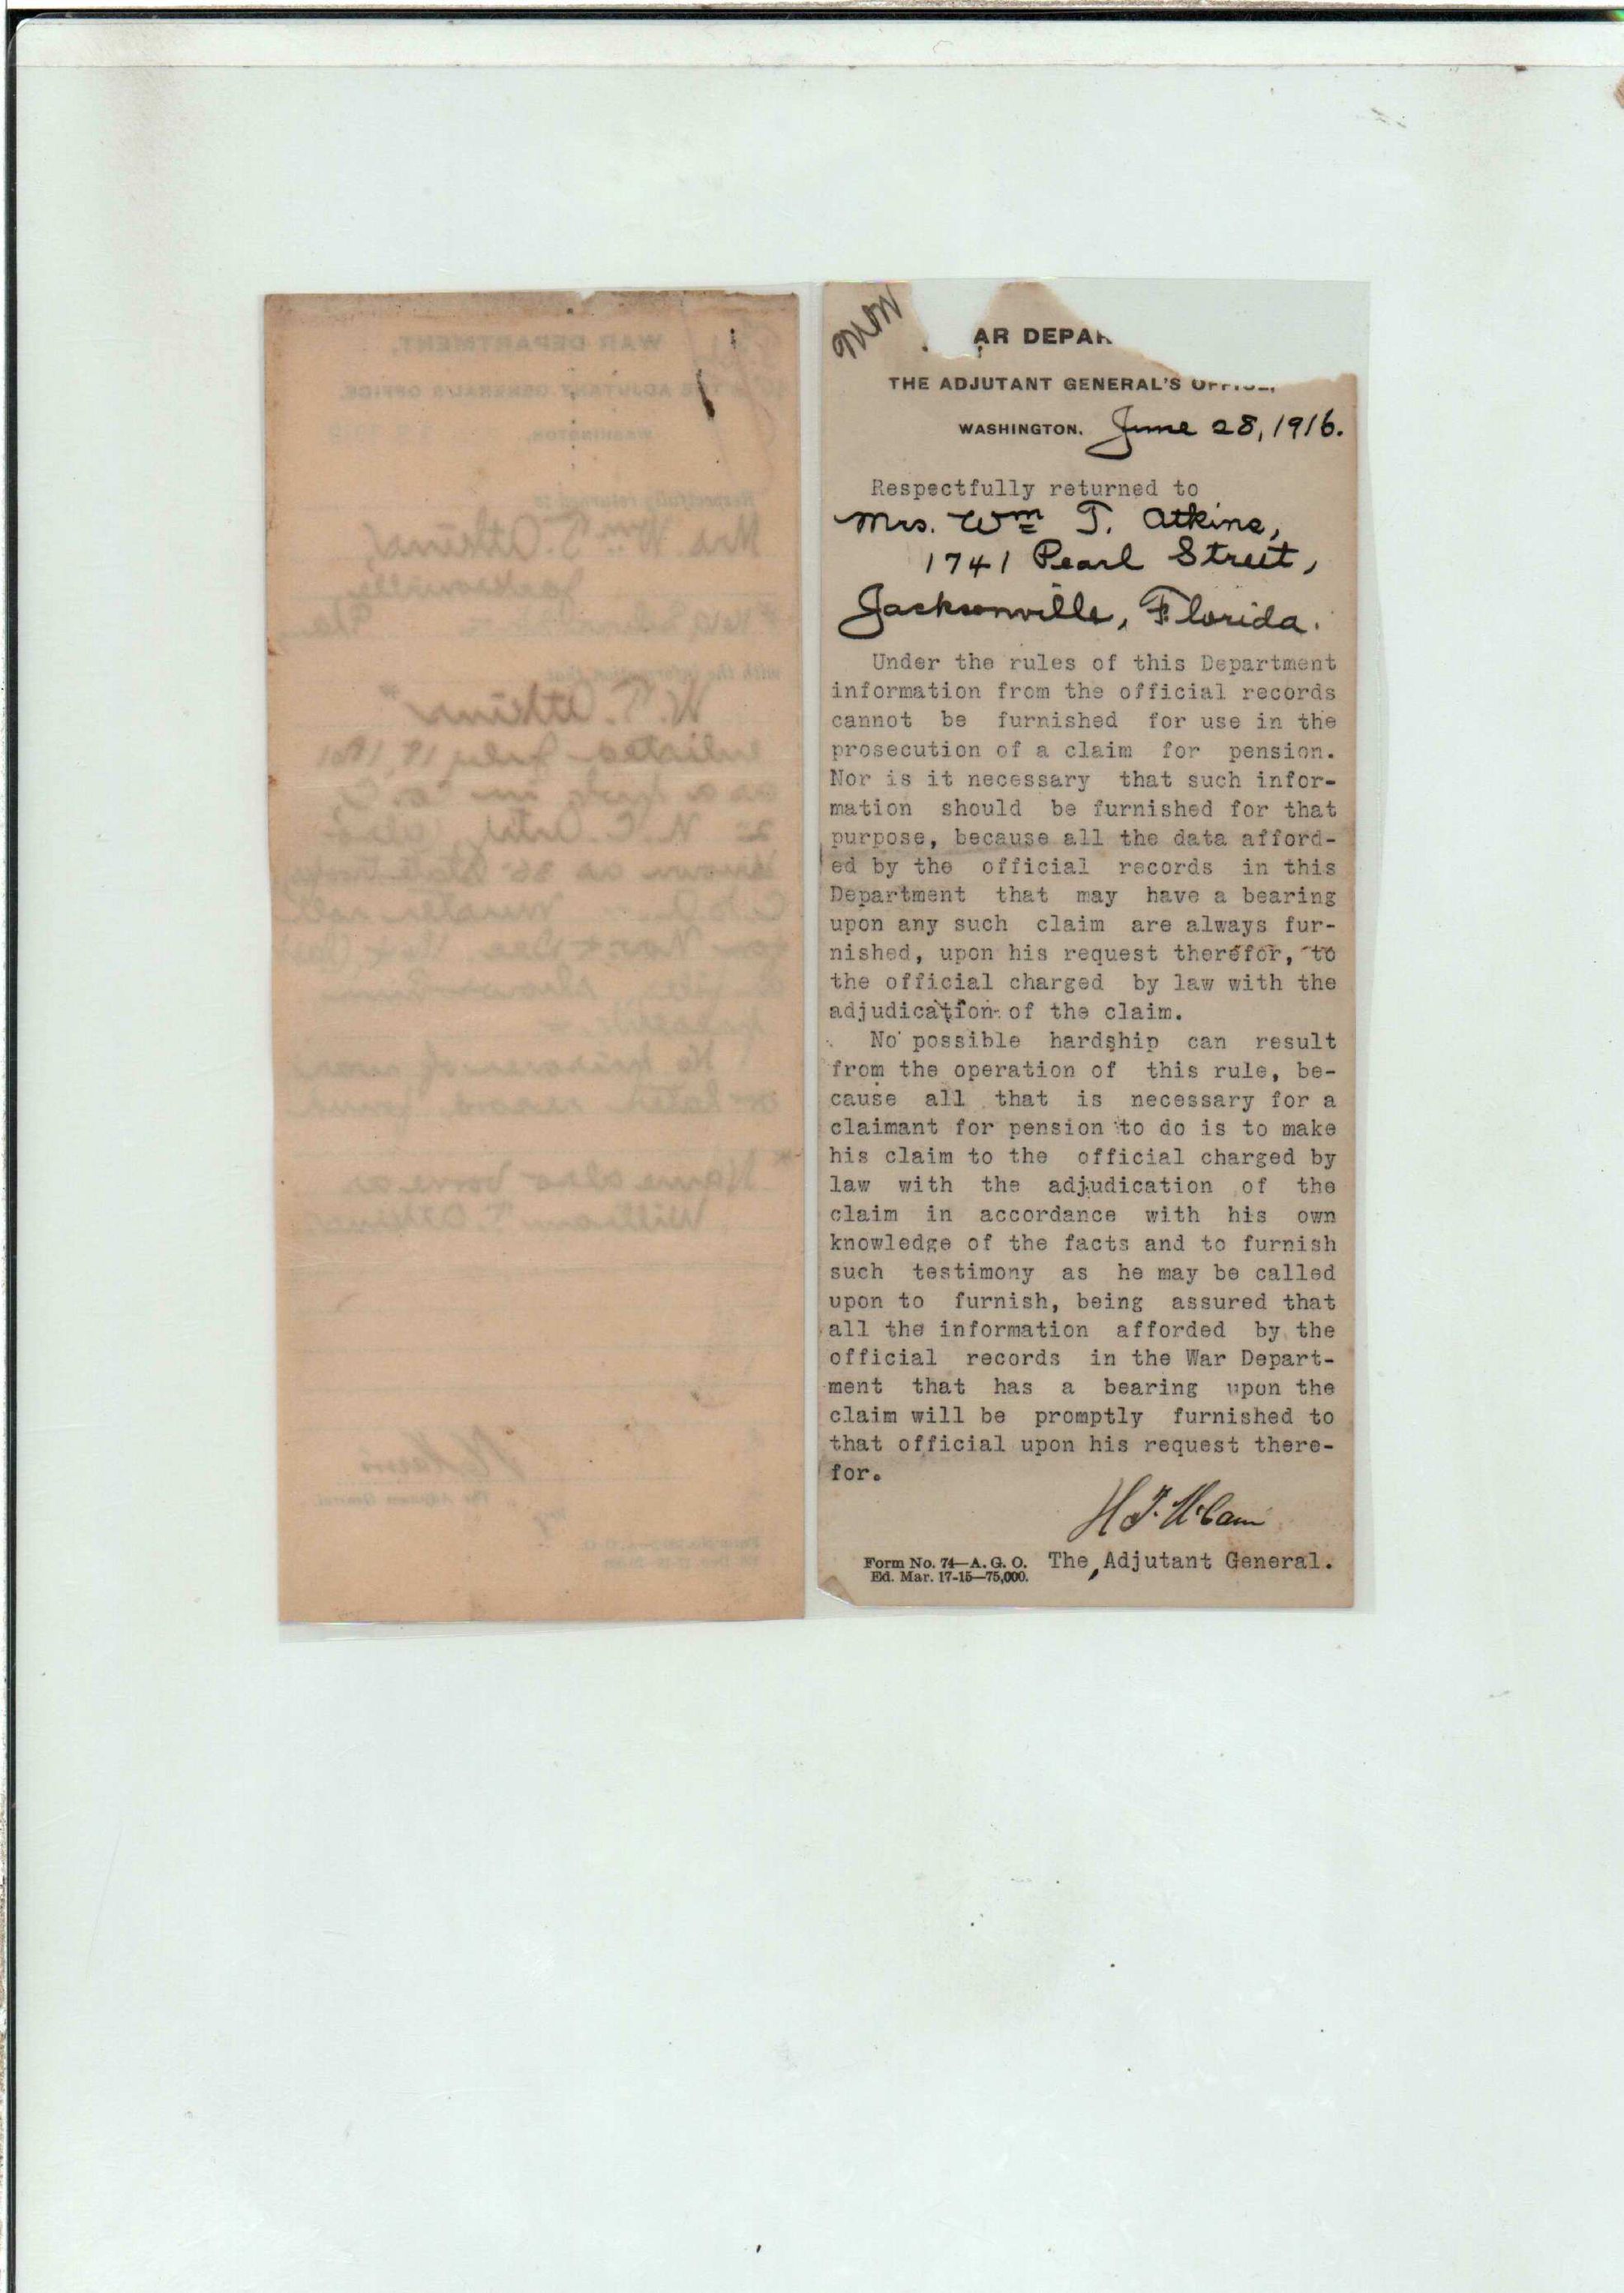 WAR DEPARTMENT.
THE ADJUTANT GENERAL'S OFFICE,
WASHINGTON,
Respectfully returned to
Mrs. Wm. T. Atkins,
Jacksonville
with the information that
W. T. Atkins *
enlisted July 18, 1861
as a in Co.
N.C. also
known as 36 State Troops,
muster roll
for Nov & Dec
shows
present
No prisoner of war
or later record found
* Name also borne as
William T. Atkins
The Adjutant General.
AR DEPAR
THE ADJUTANT GENERAL'S OFFICE,
WASHINGTON. June 28, 1916.
Respectfully returned to
Mrs. Wm T. Atkins,
1741 Pearl Street,
Jacksonville, Florida.
Under the rules of this Department
information from the official records
cannot be furnished for use in the
prosecution of a claim for pension.
Nor is it necessary that such infor-
mation should be furnished for that
purpose, because all the data afford-
ed by the official records in this
Department that may have a bearing
upon any such claim are always fur-
nished, upon his request therefor, to
the official charged by law with the
adjudication of the claim.
No possible hardship can result
from the operation of this rule, be-
cause all that is necessary for a
claimant for pension to do is to make
his claim to the official charged by
law with the adjudication of the
claim in accordance with his own
knowledge of the facts and to furnish
such testimony as he may be called
upon to furnish, being assured that
all the information afforded by the
official records in the War Depart-
ment that has a bearing upon the
claim will be promptly furnished to
that official upon his request there-
for.
H. P. McCain
Form No. 74—A. G. O. The Adjutant General.
Ed. Mar. 17-15—75,000.